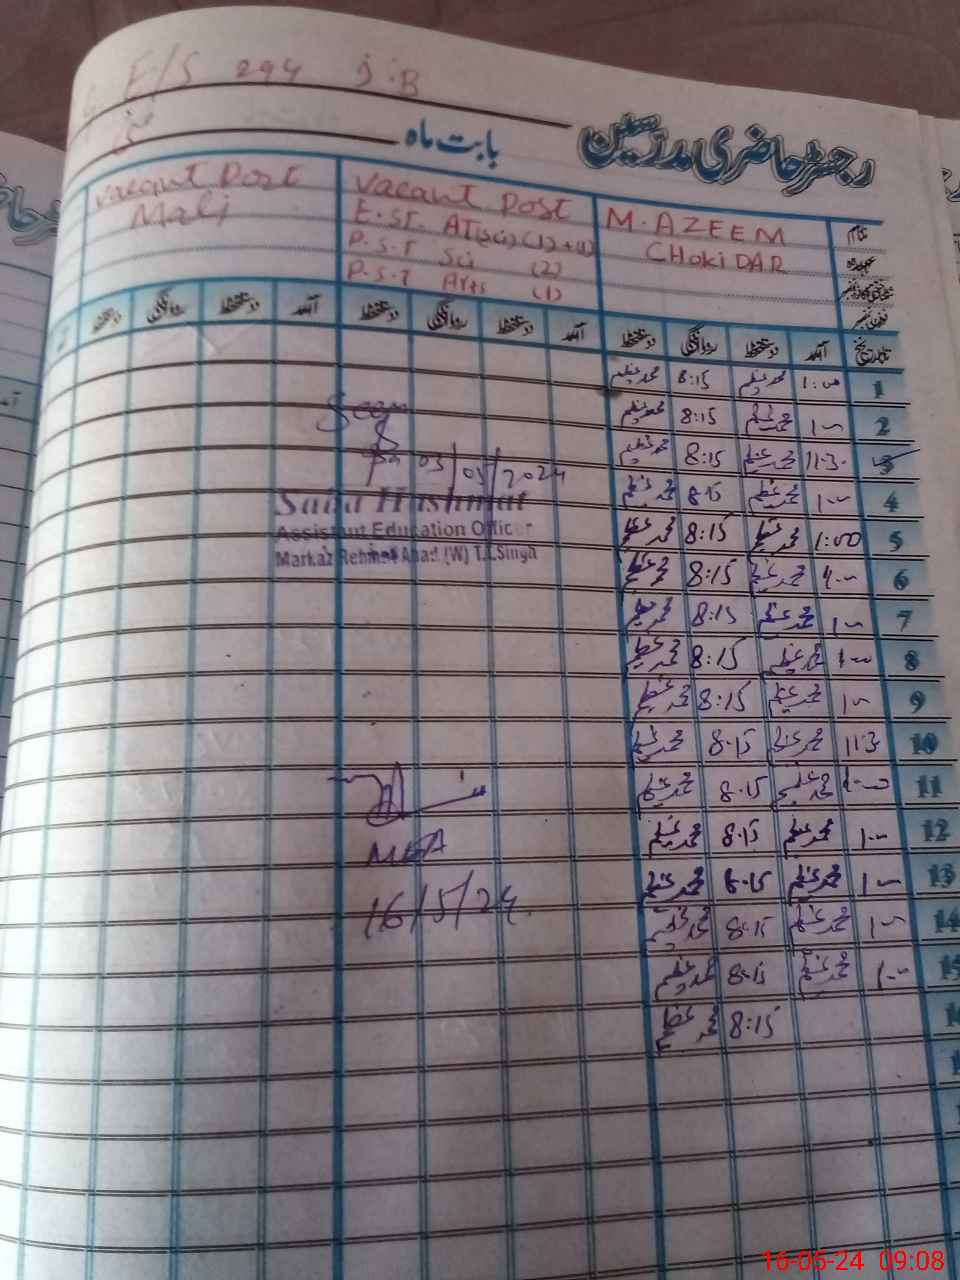 E/S 294 ج.B
رجسٹر حاضری مدرسین
بابت ماہ مئی
نام
عہدہ
M. AZEEM
CHOKIDAR
Vacant Post
E.ST. AT(Sci)(1)+(1)
P.S.T Sci (2)
P.S.T Arts (1)
Vacant Post
Mali
تاریخ آمد دستخط روانگی دستخط آمد دستخط روانگی دستخط آمد دستخط روانگی دستخط
1 1:00 محمد عظیم 8:15 محمد عظیم
2 1— محمد عظیم 8:15 محمد عظیم
3 11:30 محمد عظیم 8:15 محمد عظیم
4 1— محمد عظیم 8:15 محمد عظیم
5 1:00 محمد عظیم 8:15 محمد عظیم
6 محمد عظیم 8:15 محمد عظیم
7 1— محمد عظیم 8:15 محمد عظیم
8 1—00 محمد عظیم 8:15 محمد عظیم
9 1— محمد عظیم 8:15 محمد عظیم
10 11:3 محمد عظیم 8:15 محمد عظیم
11 1—00 محمد عظیم 8:15 محمد عظیم
12 1— محمد عظیم 8:15 محمد عظیم
13 1— محمد عظیم 8:15 محمد عظیم
14 1— محمد عظیم 8:15 محمد عظیم
15 1— محمد عظیم 8:15 محمد عظیم
16 8:15 محمد عظیم
Seen
03/05/2024
Saba Hashmat
Assistant Education Officer
Markaz Rehmat Abad (W) T.T.Singh
MEA
16/5/24
16-05-24 09:08